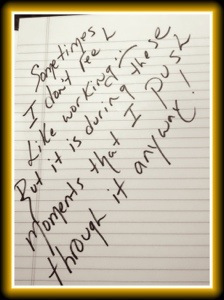 Sometimes
I don't feel
Like working...
But it is during these
moments that I push
through it anyway!